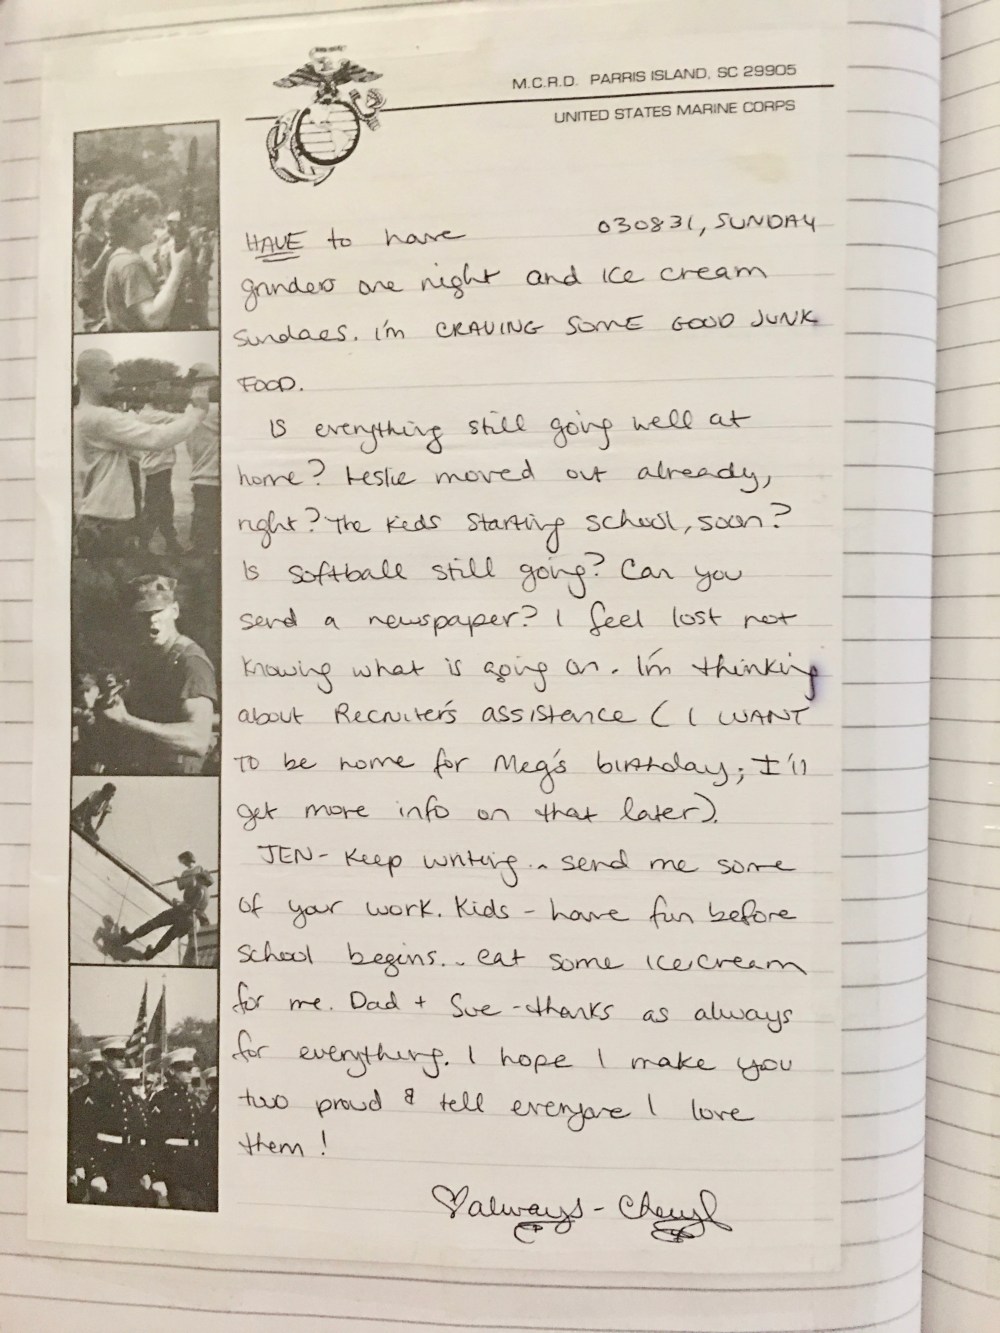 M.C.R.D. PARRIS ISLAND, SC 29905
UNITED STATES MARINE CORPS
030831, SUNDAY
HAVE to have
grinders one night and ice cream
sundaes. I'm CRAVING SOME GOOD JUNK
FOOD.
Is everything still going well at
home? Leslie moved out already,
right? The kids starting school, soon?
Is softball still going? Can you
send a newspaper? I feel lost not
knowing what is going on. I'm thinking
about Recruiter's assistence ( I WANT
TO be home for Meg's birthday; I'll
get more info on that later).
JEN- Keep writing... send me some
of your work. Kids - have fun before
school begins... eat some icecream
for me. Dad + Sue - thanks as always
for everything. I hope I make you
two proud & tell everyone I love
them!
♡always - Cheryl